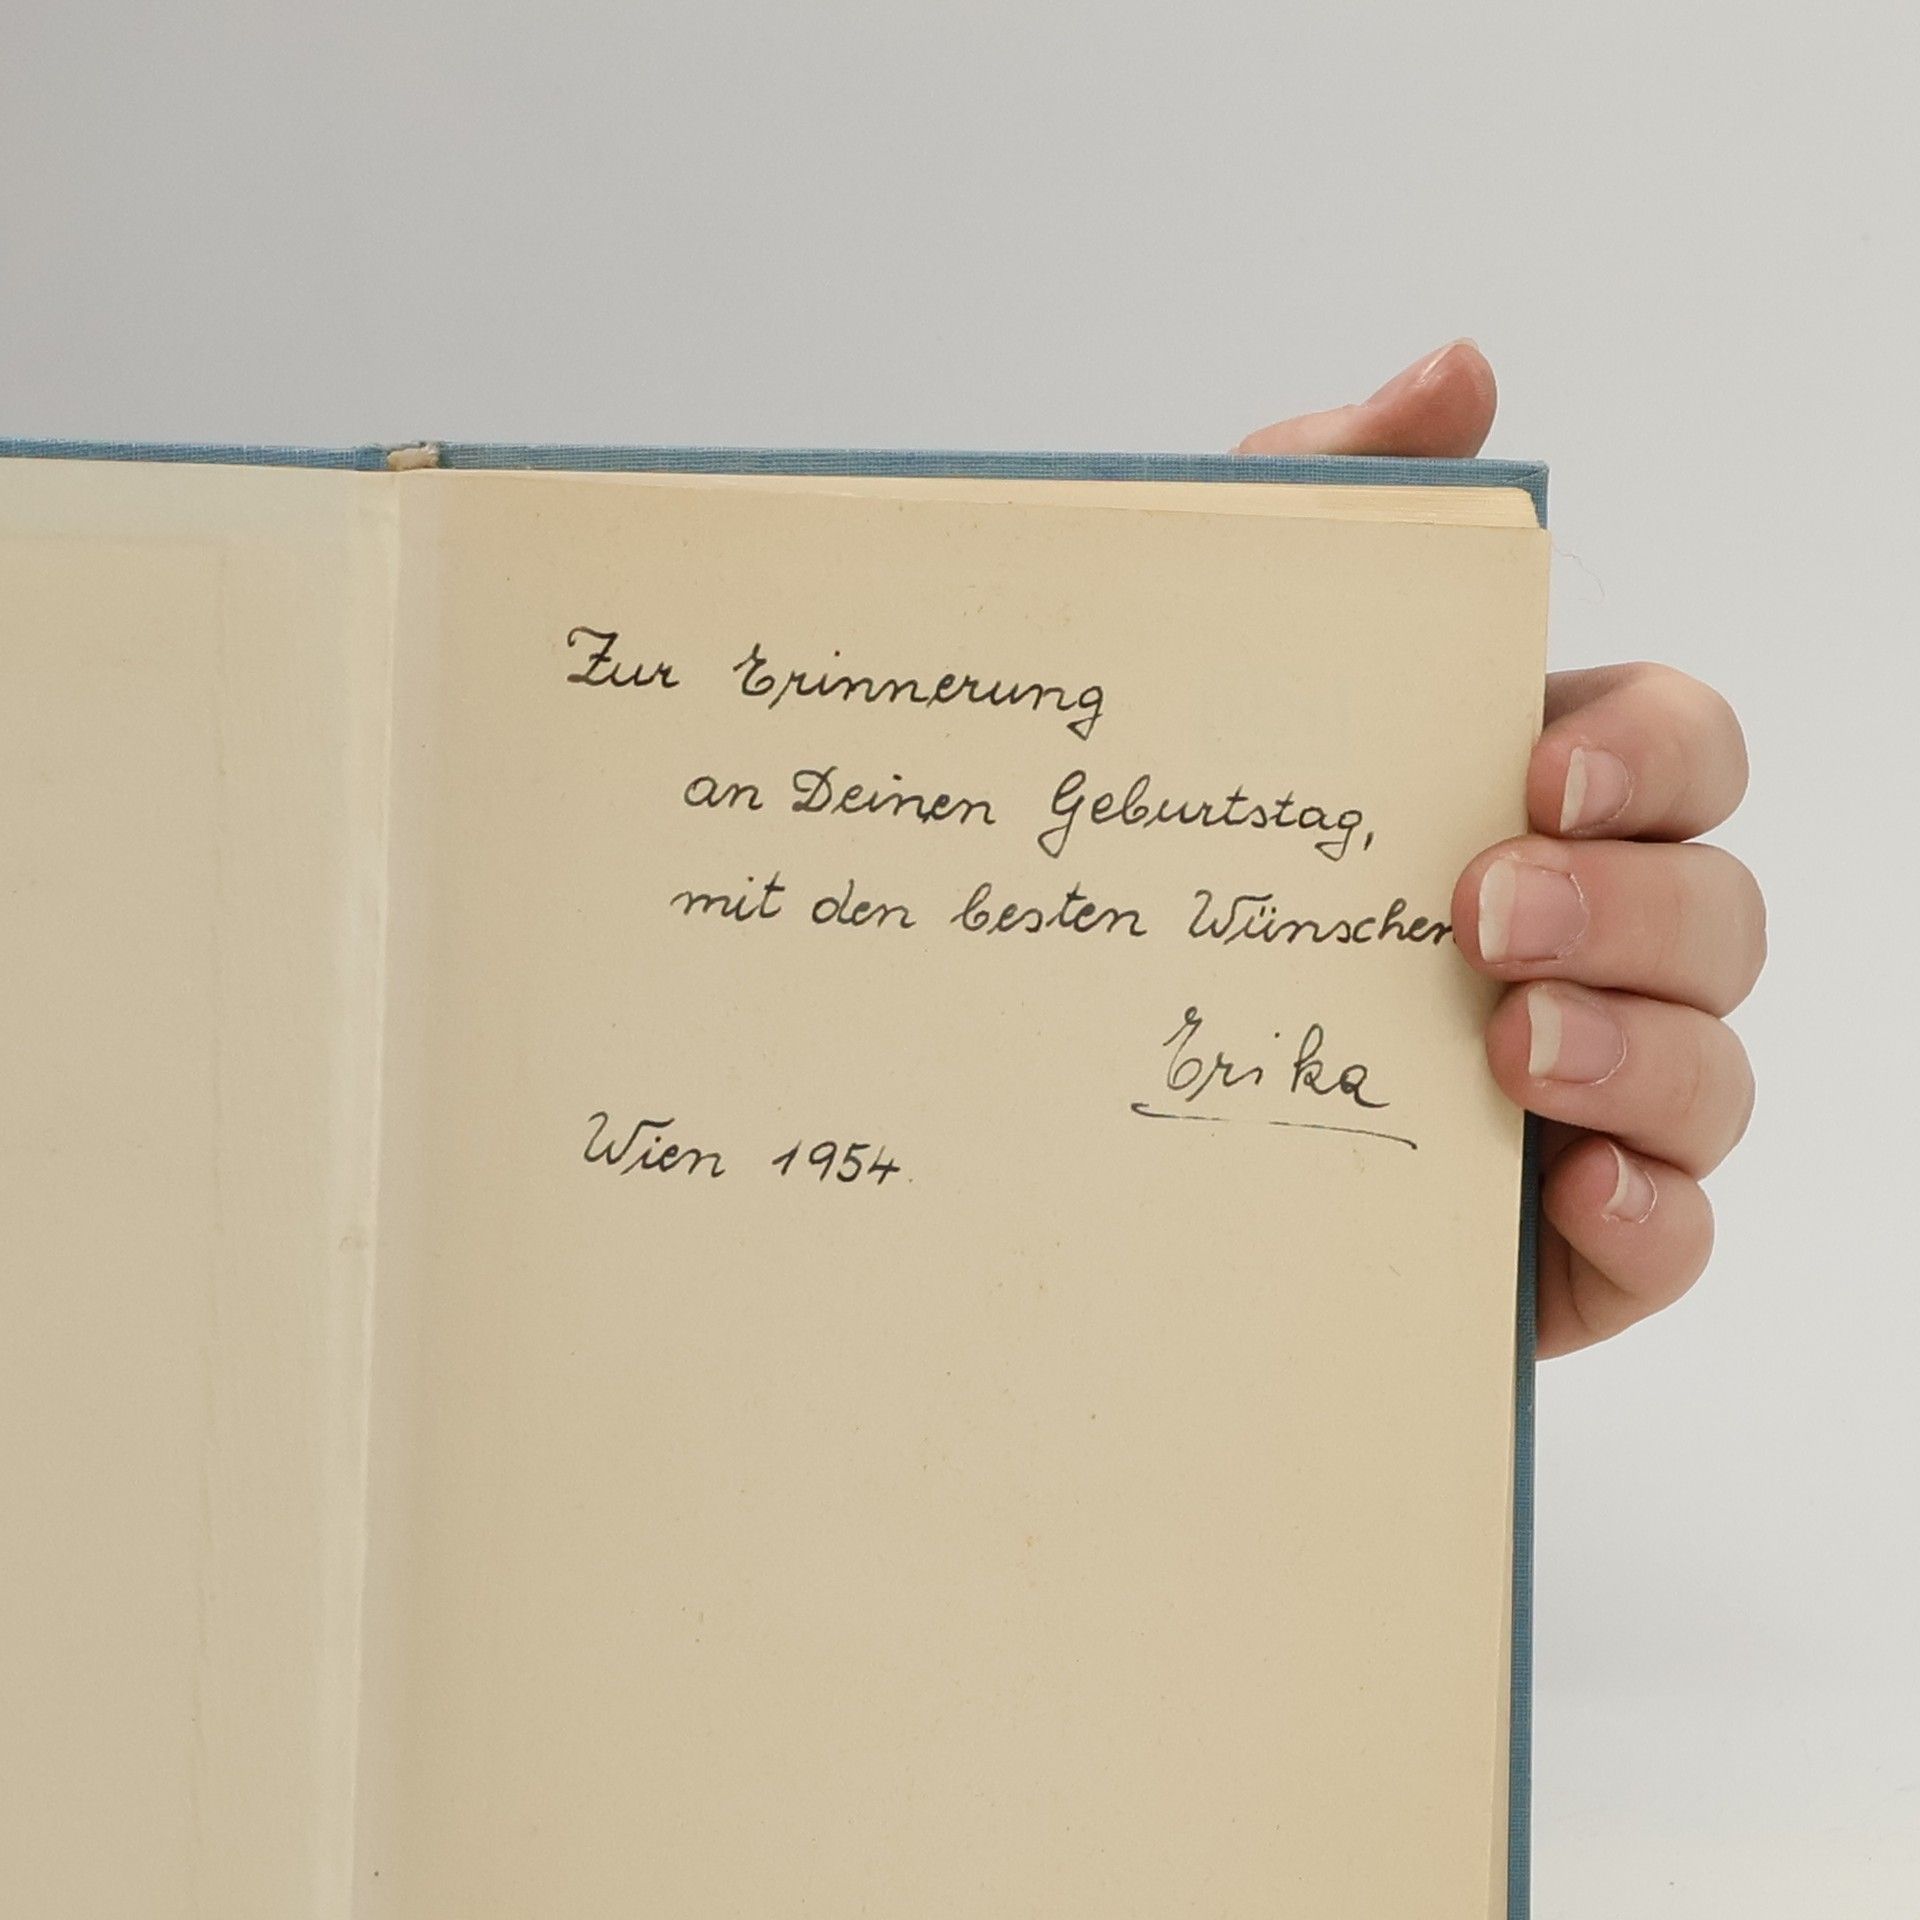 Zur Erinnerung
an Deinen Geburtstag,
mit den besten Wünschen
Erika
Wien 1954.